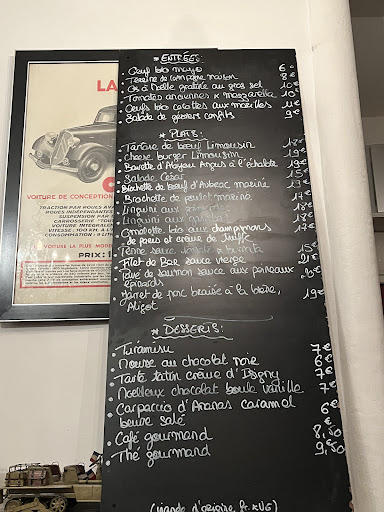 * ENTRÉES:
. Oeuf bio mayo 6€
. Terrine de campagne maison 8€
. Os à Moëlle gratiné au gros sel 10€
. Tomates anciennes & mozzarella 10€
. Oeufs bio cocottes aux morilles 11€
. Salade de gésiers confits 9€
* PLATS:
. Tartare de boeuf Limousin 18€
. Cheese burger Limousin 19€
. Bavette d'Aloyau Angus à l'échalote 19€
. Salade César 15€
. Brochette de boeuf d'Aubrac mariné 19€
. Brochette de poulet mariné 17€
. Linguini aux
. Linguini aux
. Omelette bio aux champignons
de paris et crème de truffe
. Penne sauce 15€
. Filet de Bar sauce vierge 21€
. Pavé de saumon sauce aux poireaux
épinards
. Jarret de porc braisée à la bière, 19€
Aligot
* DESSERTS:
. Tiramisu 7€
. Mousse au chocolat noir 6€
. Tarte tatin crème d'Isigny 7€
. Moelleux chocolat boule vanille 7€
. Carpaccio d'Ananas caramel
beurre salé 6€
. Café gourmand 8,50
. Thé gourmand 9,50
(viande d'origine fr.
LA
C
VOITURE DE CONCEPTION
TRACTION PAR ROUES AV
ROUES INDÉPENDANTES
SUSPENSION PAR
CARROSSERIE "TOU
VOITURE INTÉGRALE
VITESSE : 100 KM. À L'H
CONSOMMATION : 9 LIT
VOITURE LA PLUS MODE
PRIX: 1